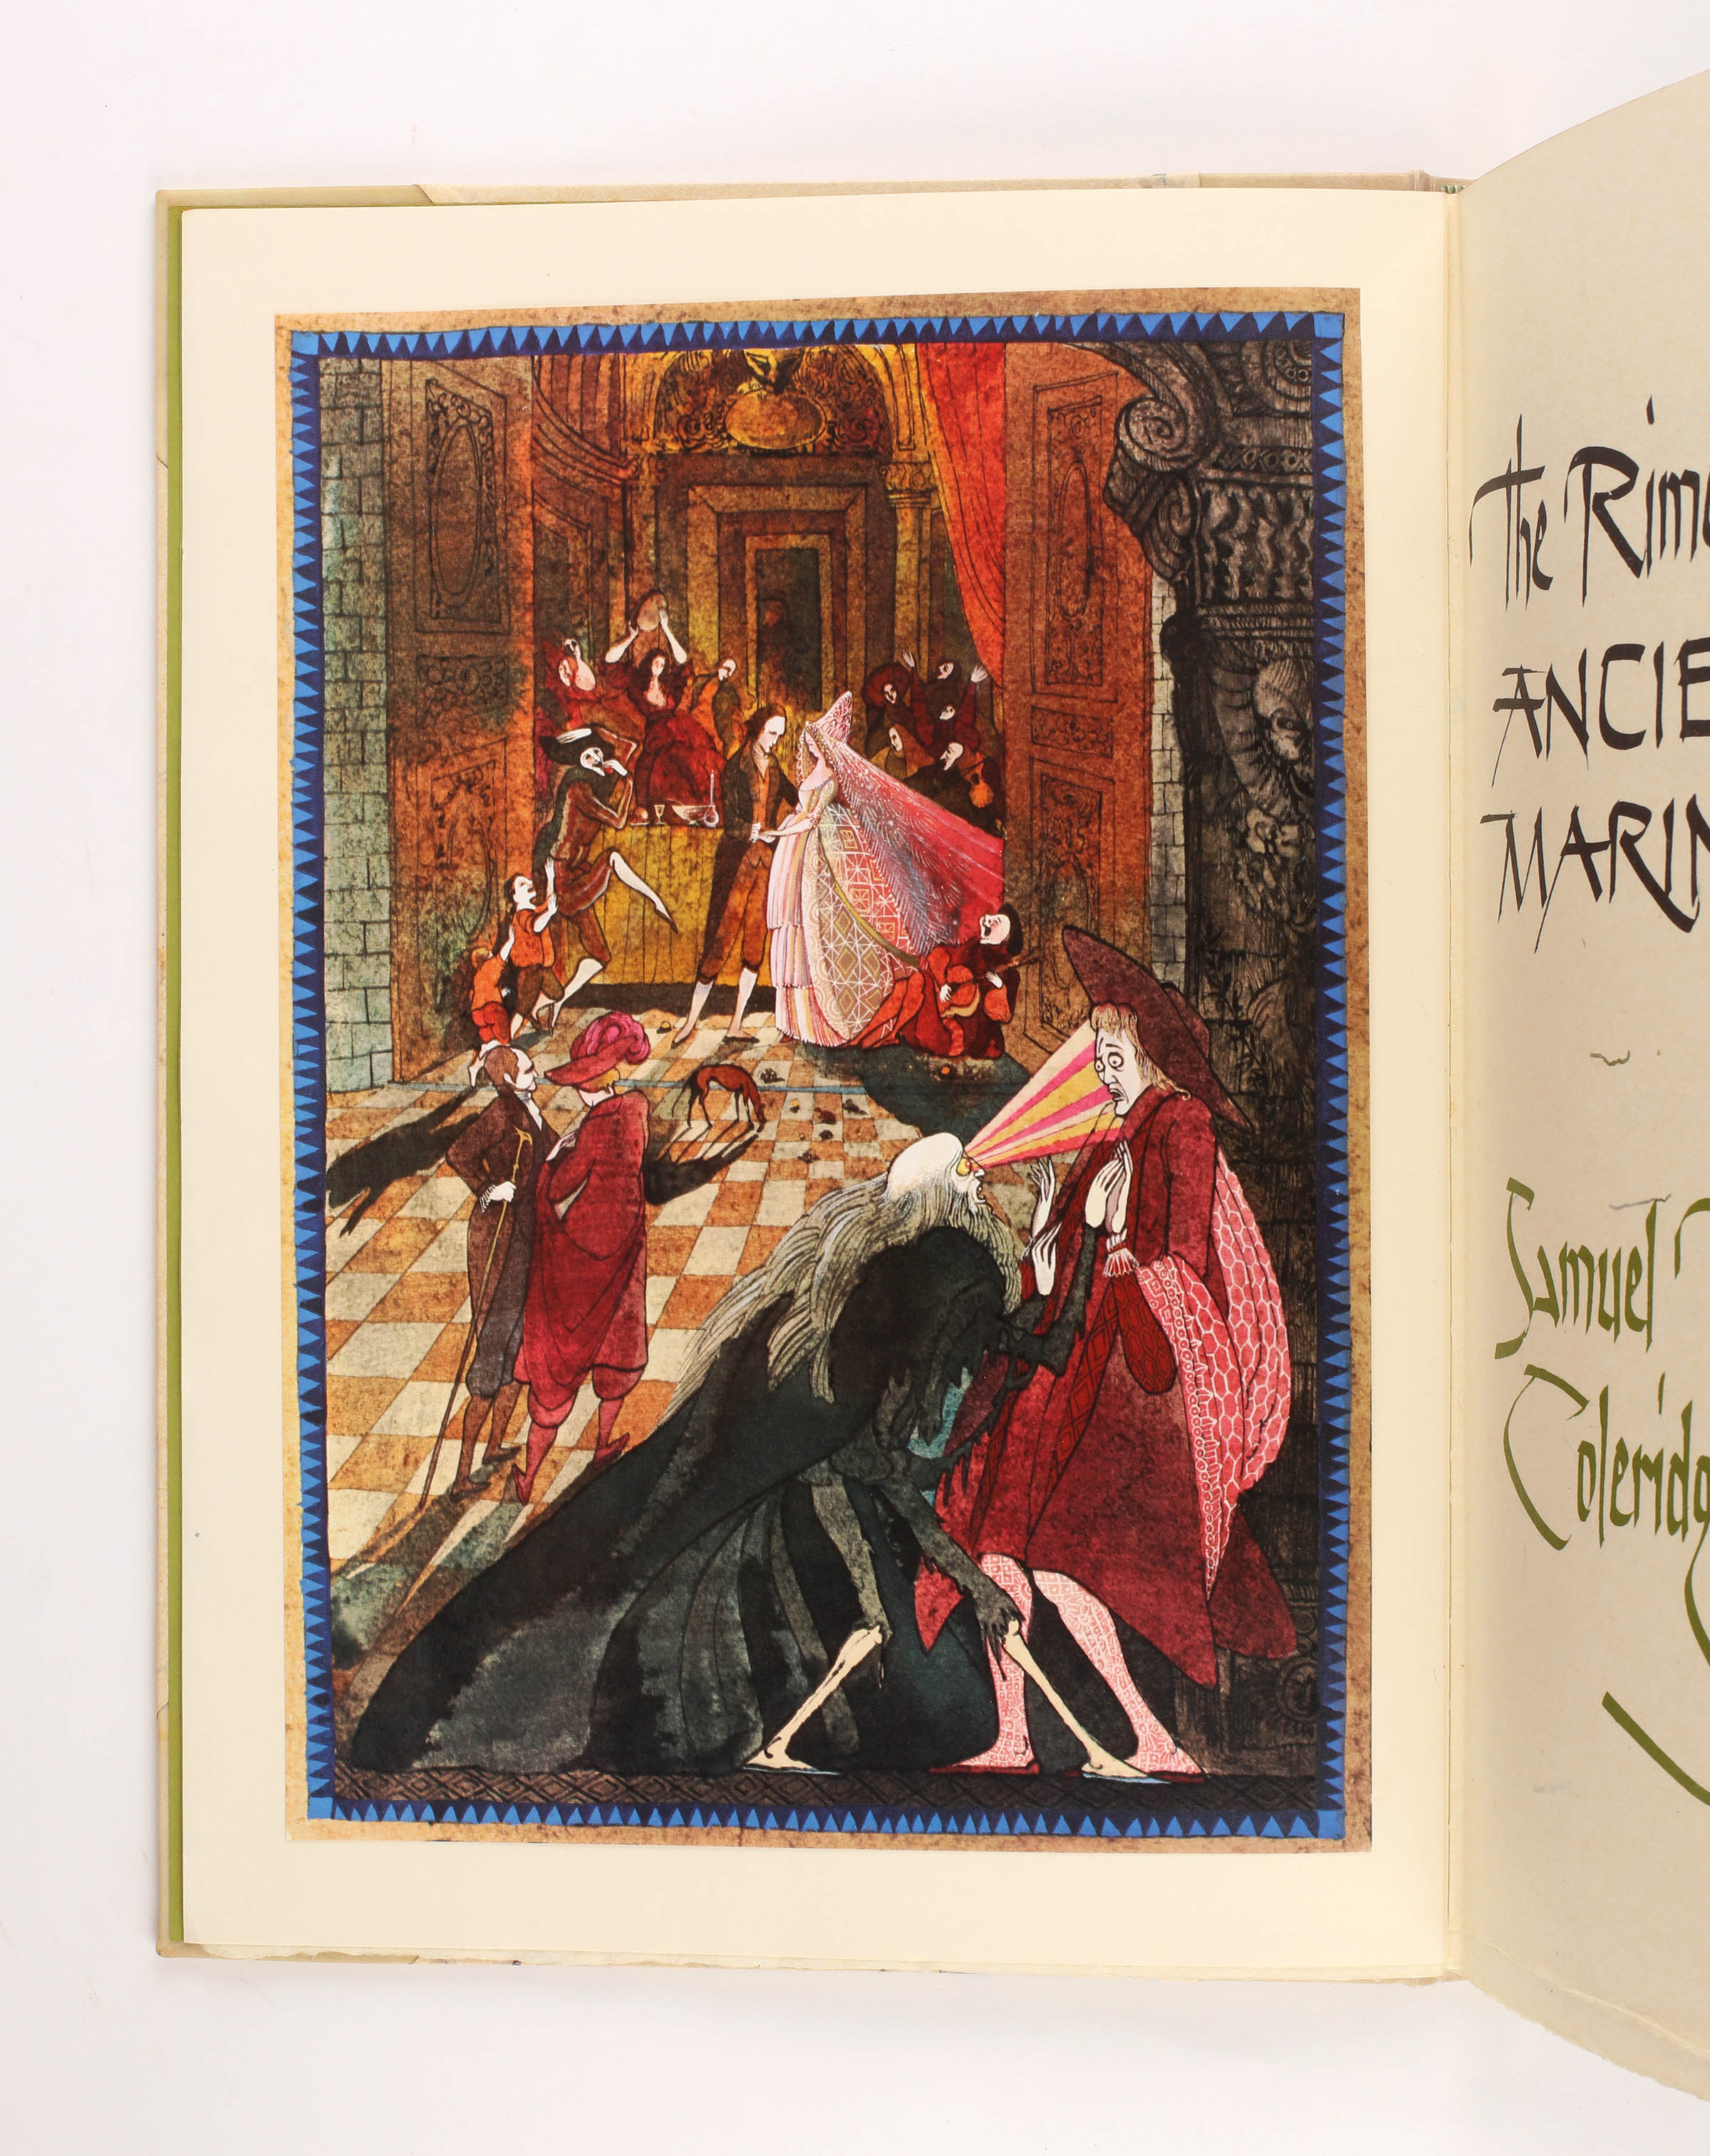 the Rime
ANCIE
MARIN
Samuel T
Coleridg